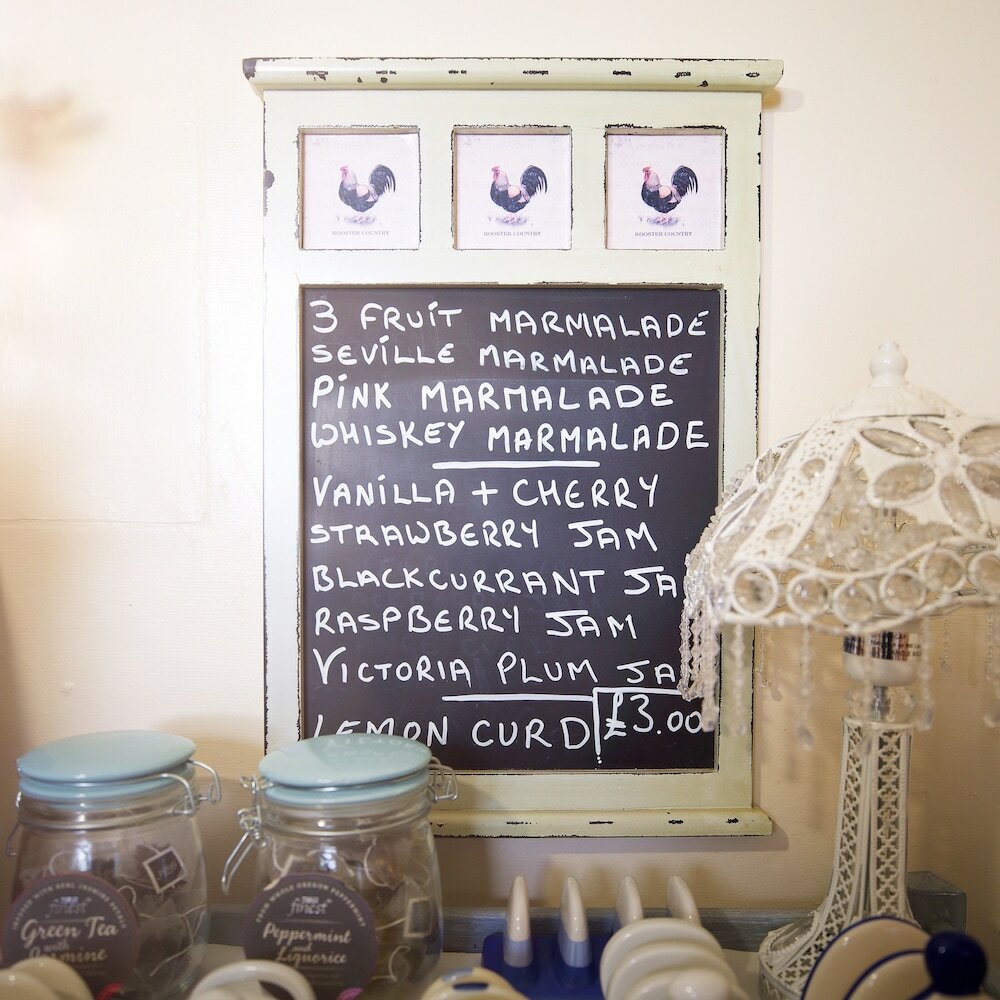 ROOSTER COUNTRY ROOSTER COUNTRY ROOSTER COUNTRY
3 FRUIT MARMALADE
SEVILLE MARMALADE
PINK MARMALADE
WHISKEY MARMALADE
VANILLA + CHERRY
STRAWBERRY JAM
BLACKCURRANT JA
RASPBERRY JAM
VICTORIA PLUM JA
LEMON CURD £3.00
finest
Green Tea
with
Jasmine
finest
Peppermint
and
Liquorice